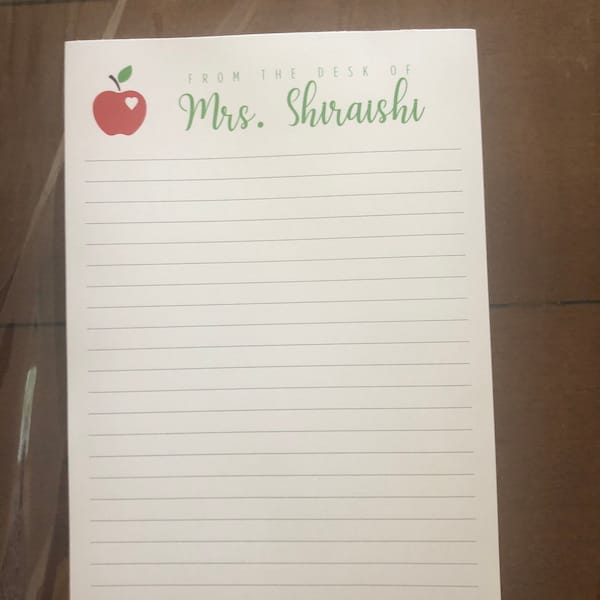 FROM THE DESK OF
Mrs. Shiraishi